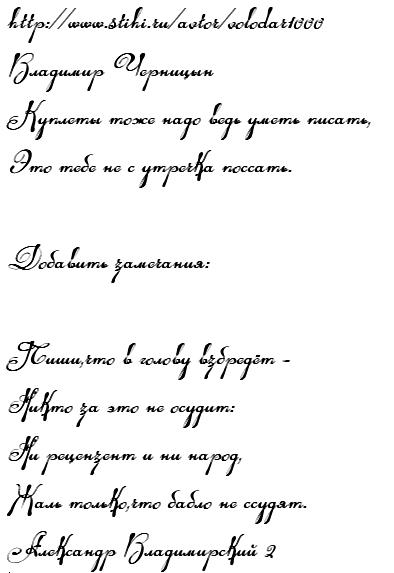 http://www.stihi.ru/avtor/volodar1000
Владимир Черницын
Куплеты тоже надо ведь уметь писать,
Это тебе не с утречка поссать.
Добавить замечания:
Пиши,что в голову взбредёт -
Никто за это не осудит:
Ни рецензент и ни народ,
Жаль только,что бабло не ссудят.
Александр Владимирский 2